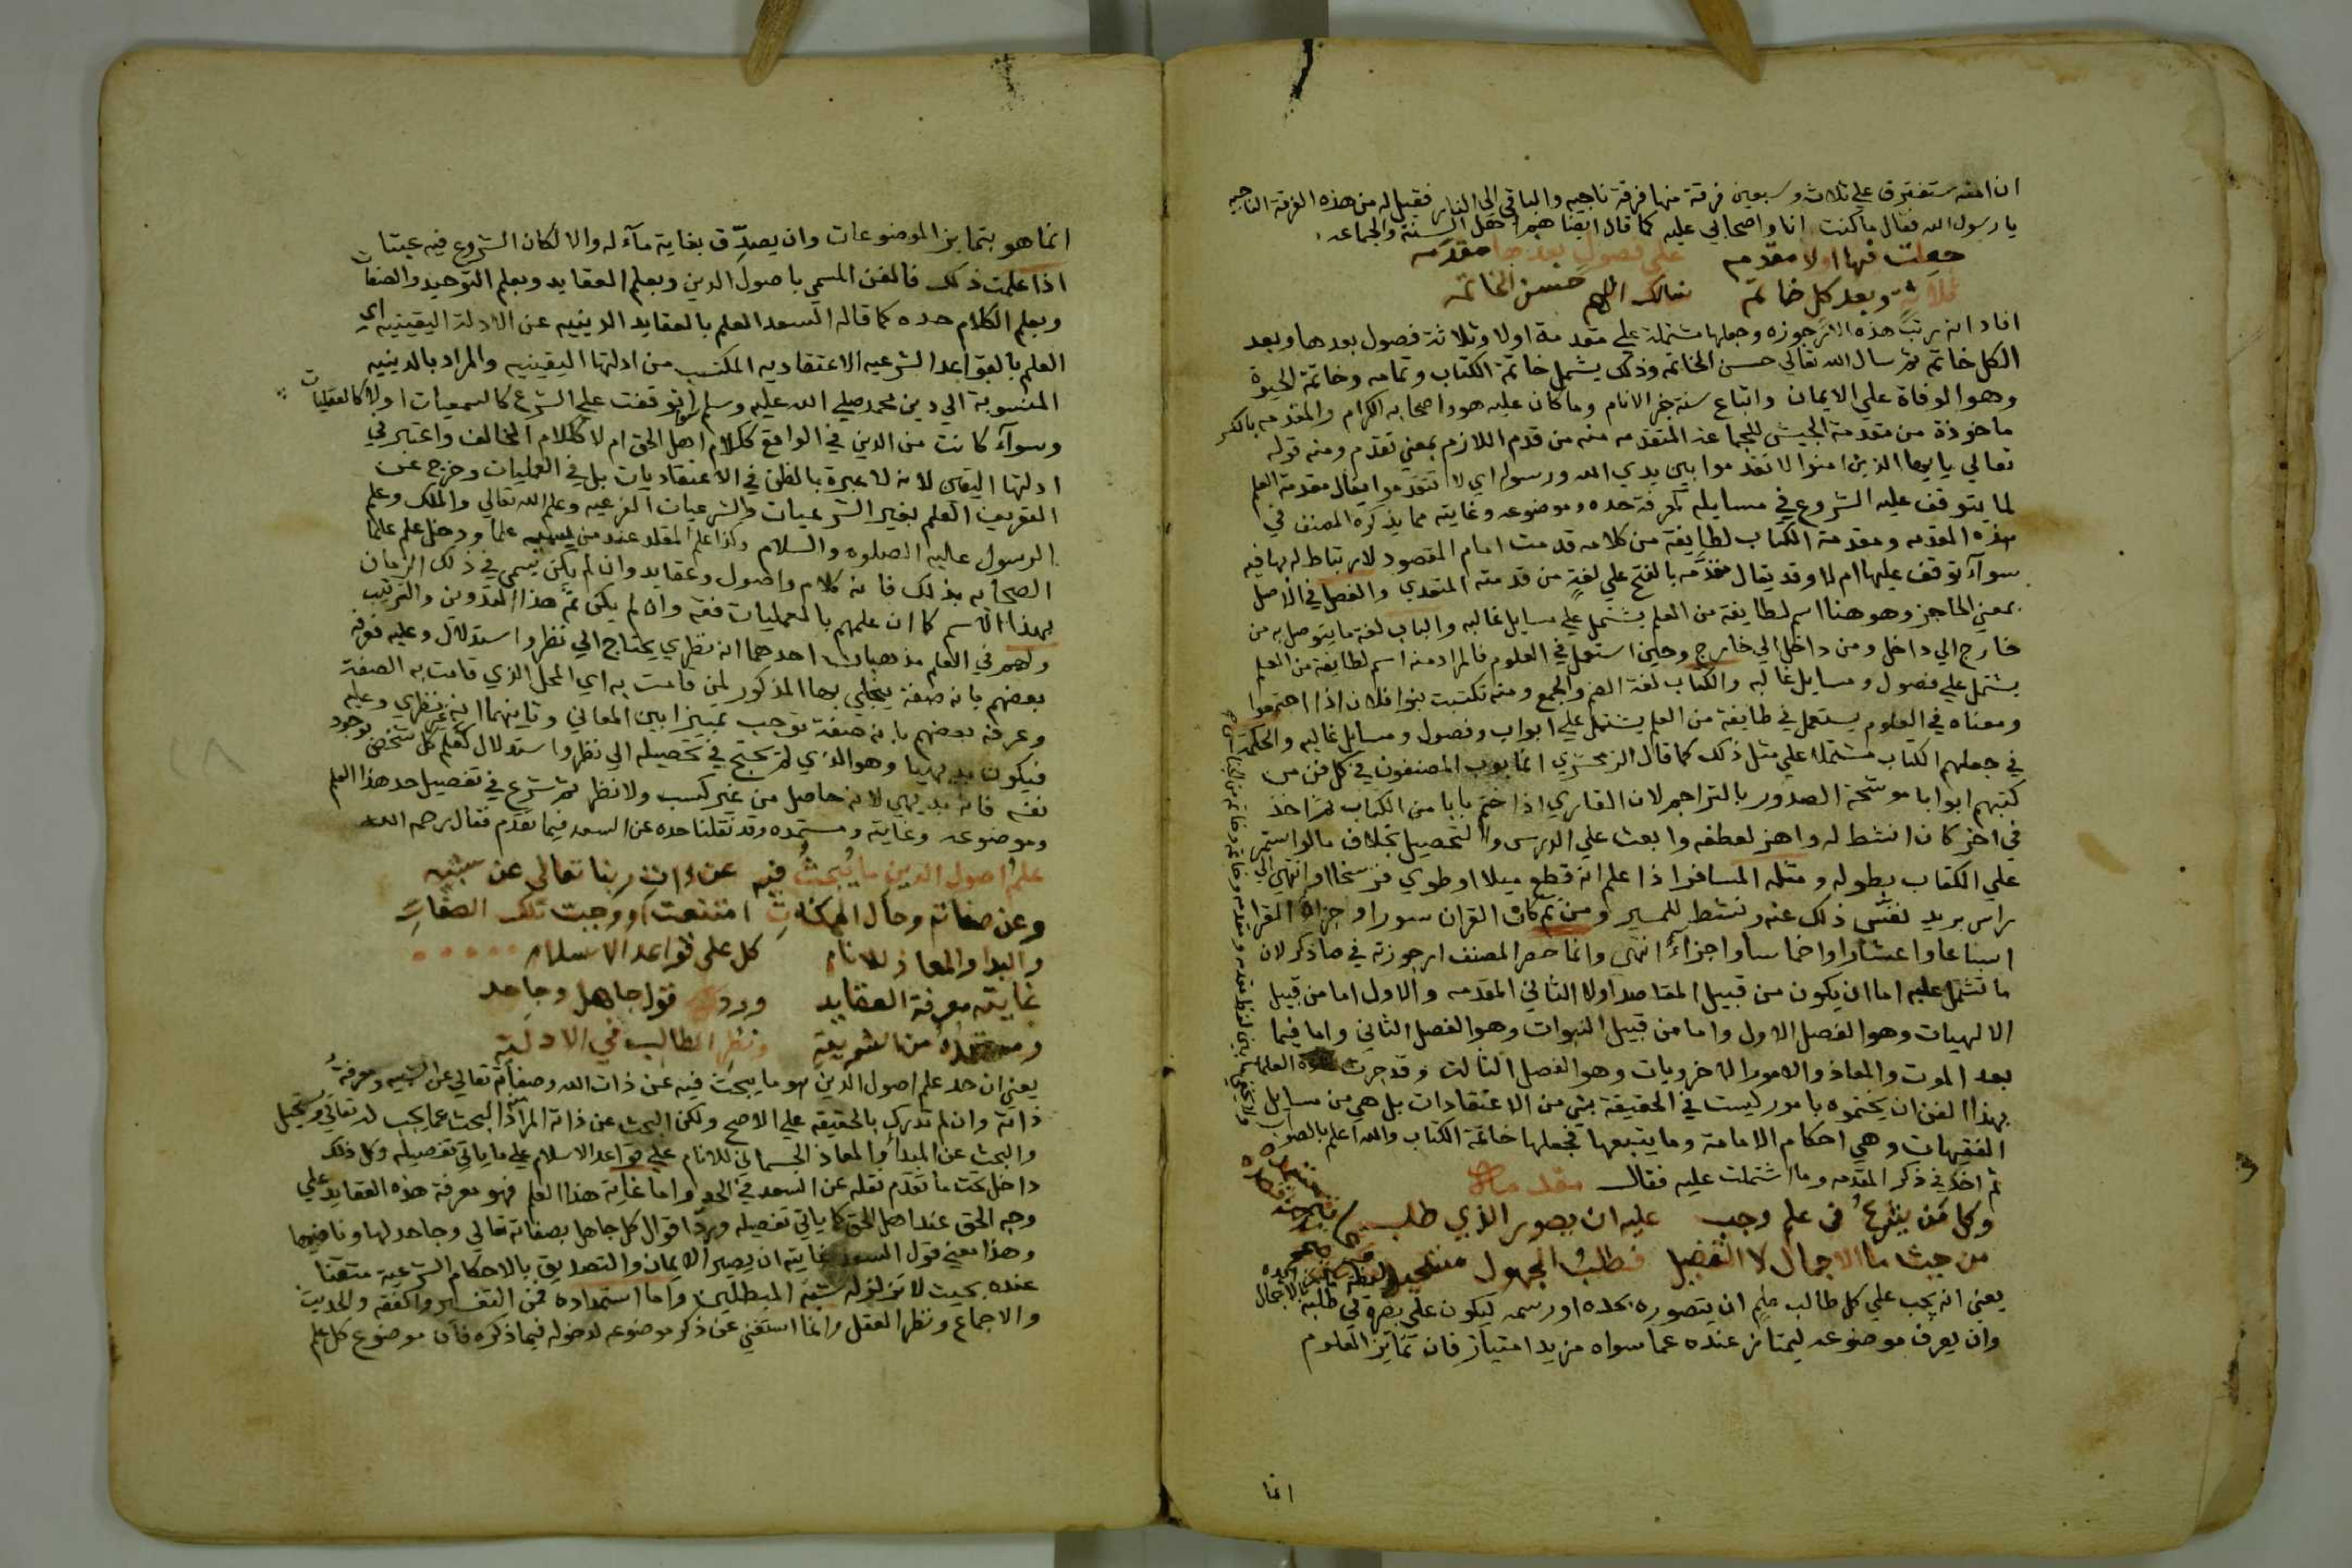 ان امته ستفترق على ثلاث وسبعين فرقة منها فرقة ناجيه والباقي الى النار فقيل له من هذه الفرقة الناجيه
يا رسول الله فقال ما كنت انا واصحابي عليه كما قال ايضا هم اهل السنة والجماعه
جعلت فيها اولا مقدمه على فصول بعدها مقدمه
ثلاثة وبعد كل خاتمة نسالك اللهم حسن الخاتمه
افاد انه رتب هذه الارجوزه وجعلها مشتملة علي مقدمة اولا وثلاثة فصول بعدها وبعد
الكل خاتمة ثم سال الله تعالي حسن الخاتمه وذلك يشمل خاتمة الكتاب وتمامه وخاتمة الحيوة
وهو الوفاة علي الايمان واتباع سنة خير الانام وما كان عليه هو واصحابه الكرام والمقدمه بالكسر
ماخوذة من مقدمة الجيش للجماعة المتقدمه منه من قدم اللازم بمعني تقدم ومنه قوله
تعالي يا ايها الذين امنوا لا تقدموا بين يدي الله ورسوله اي لا تتقدموا يقال مقدمة العلم
لما يتوقف عليه الشروع في مسايله كمعرفة حده وموضوعه وغايته مما يذكره المصنف في
هذه المقدمه ومقدمة الكتاب لطايفة من كلامه قدمت امام المقصود لارتباط له بها فيه
سوآء توقف عليها ام لا وقد يقال مقدَّمه بالفتح علي لغةٍ من قدمته المتعدي والفصل في الاصل
بمعني الحاجز وهو هنا اسم لطايفة من العلم يشتمل علي مسايل غالبه والباب لغة ما يتوصل به من
خارج الي داخل ومن داخل الي خارج وحين استعمل في العلوم فالمراد منه اسم لطايفة من العلم
يشتمل علي فصول ومسايل غالبه والكتاب لغة الضم والجمع ومنه تكتبت بنوا فلان اذا اجتمعوا
ومعناه في العلوم يستعمل في طايفة من العلم يشتمل علي ابواب وفصول ومسايل غالبه والحكمة
في جعلهم الكتاب مشتملا علي مثل ذلك كما قال الزمخشري انما بوب المصنفون في كل فن من
كتبهم ابوابا موشحة الصدور بالتراجم لان القاري اذا ختم بابا من الكتاب ثم اخذ
في اخر كان انشط له واهز لعطفه وابعث علي الدرس والتحصيل بخلاف ما لو استمر
علي الكتاب بطوله ومثله المسافر اذا علم انه قطع ميلا او طوي فرسخا او انتهي الي
راس بريد نفّس ذلك عنه ونشط للمسير ومن ثم كان القران سورا وجزاه القرا
اسباعا واعشارا واخماسا واجزآءً انتهى وانما حصر المصنف ارجوزته في ما ذكر لان
ما تشتمل عليه اما ان يكون من قبيل المقاصد اولا الثاني المقدمه والاول اما من قبيل
الالهيات وهو الفصل الاول واما من قبيل النبوات وهو الفصل الثاني واما فيما
بعد الموت والمعاد والامور الاخرويات وهو الفصل الثالث وقد جرت عادة العلما
بهذا الفن ان يختموه بامور ليست في الحقيقة بشي من الاعتقادات بل هي من مسايل
الفقيهات وهي احكام الامامة وما يتبعها فجعلها خاتمة الكتاب والله اعلم بالصواب
ثم اخذ في ذكر المقدمه وما اشتملت عليه فقال مقدمة
وكل من يشرعُ في علم وجب عليه ان يصور الذي طلب
من حيث ما الاجمال لا التفصيل فطلبُ المجهول مستحيل
يعني انه يجب علي كل طالب علم ان يتصوره بحده او رسمه ليكون علي بصيرة في طلبه
وان يعرف موضوعه ليمتاز عنده عما سواه مزيد امتياز فان تمايز العلوم
انما
انما هو بتمايز الموضوعات وان يصدِّق بغاية مآء له والا لكان الشروع فيه عبثا
اذا علمت ذلك فالفن المسمي باصول الدين وبعلم العقايد وبعلم التوحيد والصفات
وبعلم الكلام حده كما قاله السعد العلم بالعقايد الدينيه عن الادلة اليقينيه اي
العلم بالقواعد الشرعيه الاعتقاديه المكتسب من ادلتها اليقينيه والمراد بالدينيه
المنسوبة الي دين محمد صلي الله عليه وسلم سوآء توقفت علي الشرع كالسمعيات اولا كالعقليات
وسوآء كانت من الدين في الواقع ككلام اهل الحق ام لا ككلام المخالف واعتبر في
ادلتها اليقين لانه لا عبرة بالظن في الاعتقاديات بل في العمليات وخرج عن
التعريف العلم بغير الشرعيات والشرعيات الفرعيه وعلم الله تعالي والملك وعلم
الرسول عليه الصلوه والسلام وكذا علم المقلد عند من يسميه علما ودخل علم علما
الصحابه بذلك فانه كلام واصول وعقايد وان لم يكن يسمي في ذلك الزمان
بهذا الاسم كما ان علمهم بالعمليات فقه وان لم يكن ثَمَّ هذا التدوين والترتيب
ولهم في العلم مذهبان احدهما انه نظري يحتاج الي نظر واستدلال وعليه فعرفه
بعضهم بانه صفة ينجلي بها المذكور لمن قامت به اي المحل الذي قامت به الصفة
وعرفه بعضهم بانه صفة توجب تمييزا بين المعاني وثانيهما انه غير نظري وعليه
فيكون بديهيا وهو الذي لم يحتج في تحصيله الي نظر واستدلال كعلم كل شخص بوجود
نفسه فانه بديهي لانه حاصل من غير كسب ولا نظر ثم شرع في تفصيل حد هذا العلم
وموضوعه وغايته ومستمده وقد نقلنا حده عن السعد فيما تقدم فقال رحمه الله
علمُ اصول الدين ما يُبحثُ فيه عن ذات ربنا تعالى عن شبيه
وعن صفاته وحال الممكناتِ امتنعت او وجبت تلك الصفات
والبدا والمعاد للانام كل على قواعد الاسلام
غايته معرفة العقايد ورد قول جاهل وجاحد
ومستمده من الشريعة ونظر الطالب في الادلة
يعني ان حد علم اصول الدين هو ما يبحث فيه عن ذات الله وصفاته تعالي عن الشبيه ومعرفةُ
ذاته وان لم تدرك بالحقيقة علي الاصح ولكن البحث عن ذاته المراد البحث عما يجب له تعالي ويستحيل
والبحث عن المبدأ والمعاد الجسماني للانام علي قواعد الاسلام علي ما ياتي تفصيله وكل ذلك
داخل تحت ما تقدم نقله عن السعد في الحد واما غاية هذا العلم فهو معرفة هذه العقايد علي
وجه الحق عند اهل الحق كما ياتي تفصيله وردّ اقوال كل جاهل بصفاته تعالي وجاحد لها ونافيها
وهذا معني قول السعد غايته ان يصير الايمان والتصديق بالاحكام الشرعية متقنا
عنده بحيث لا تزلزله شبه المبطلين واما استمداده فمن التفسير والفقه والحديث
والاجماع ونظر العقل وانما استغني عن ذكر موضوعه لدخوله فيما ذكره فان موضوع كل علم